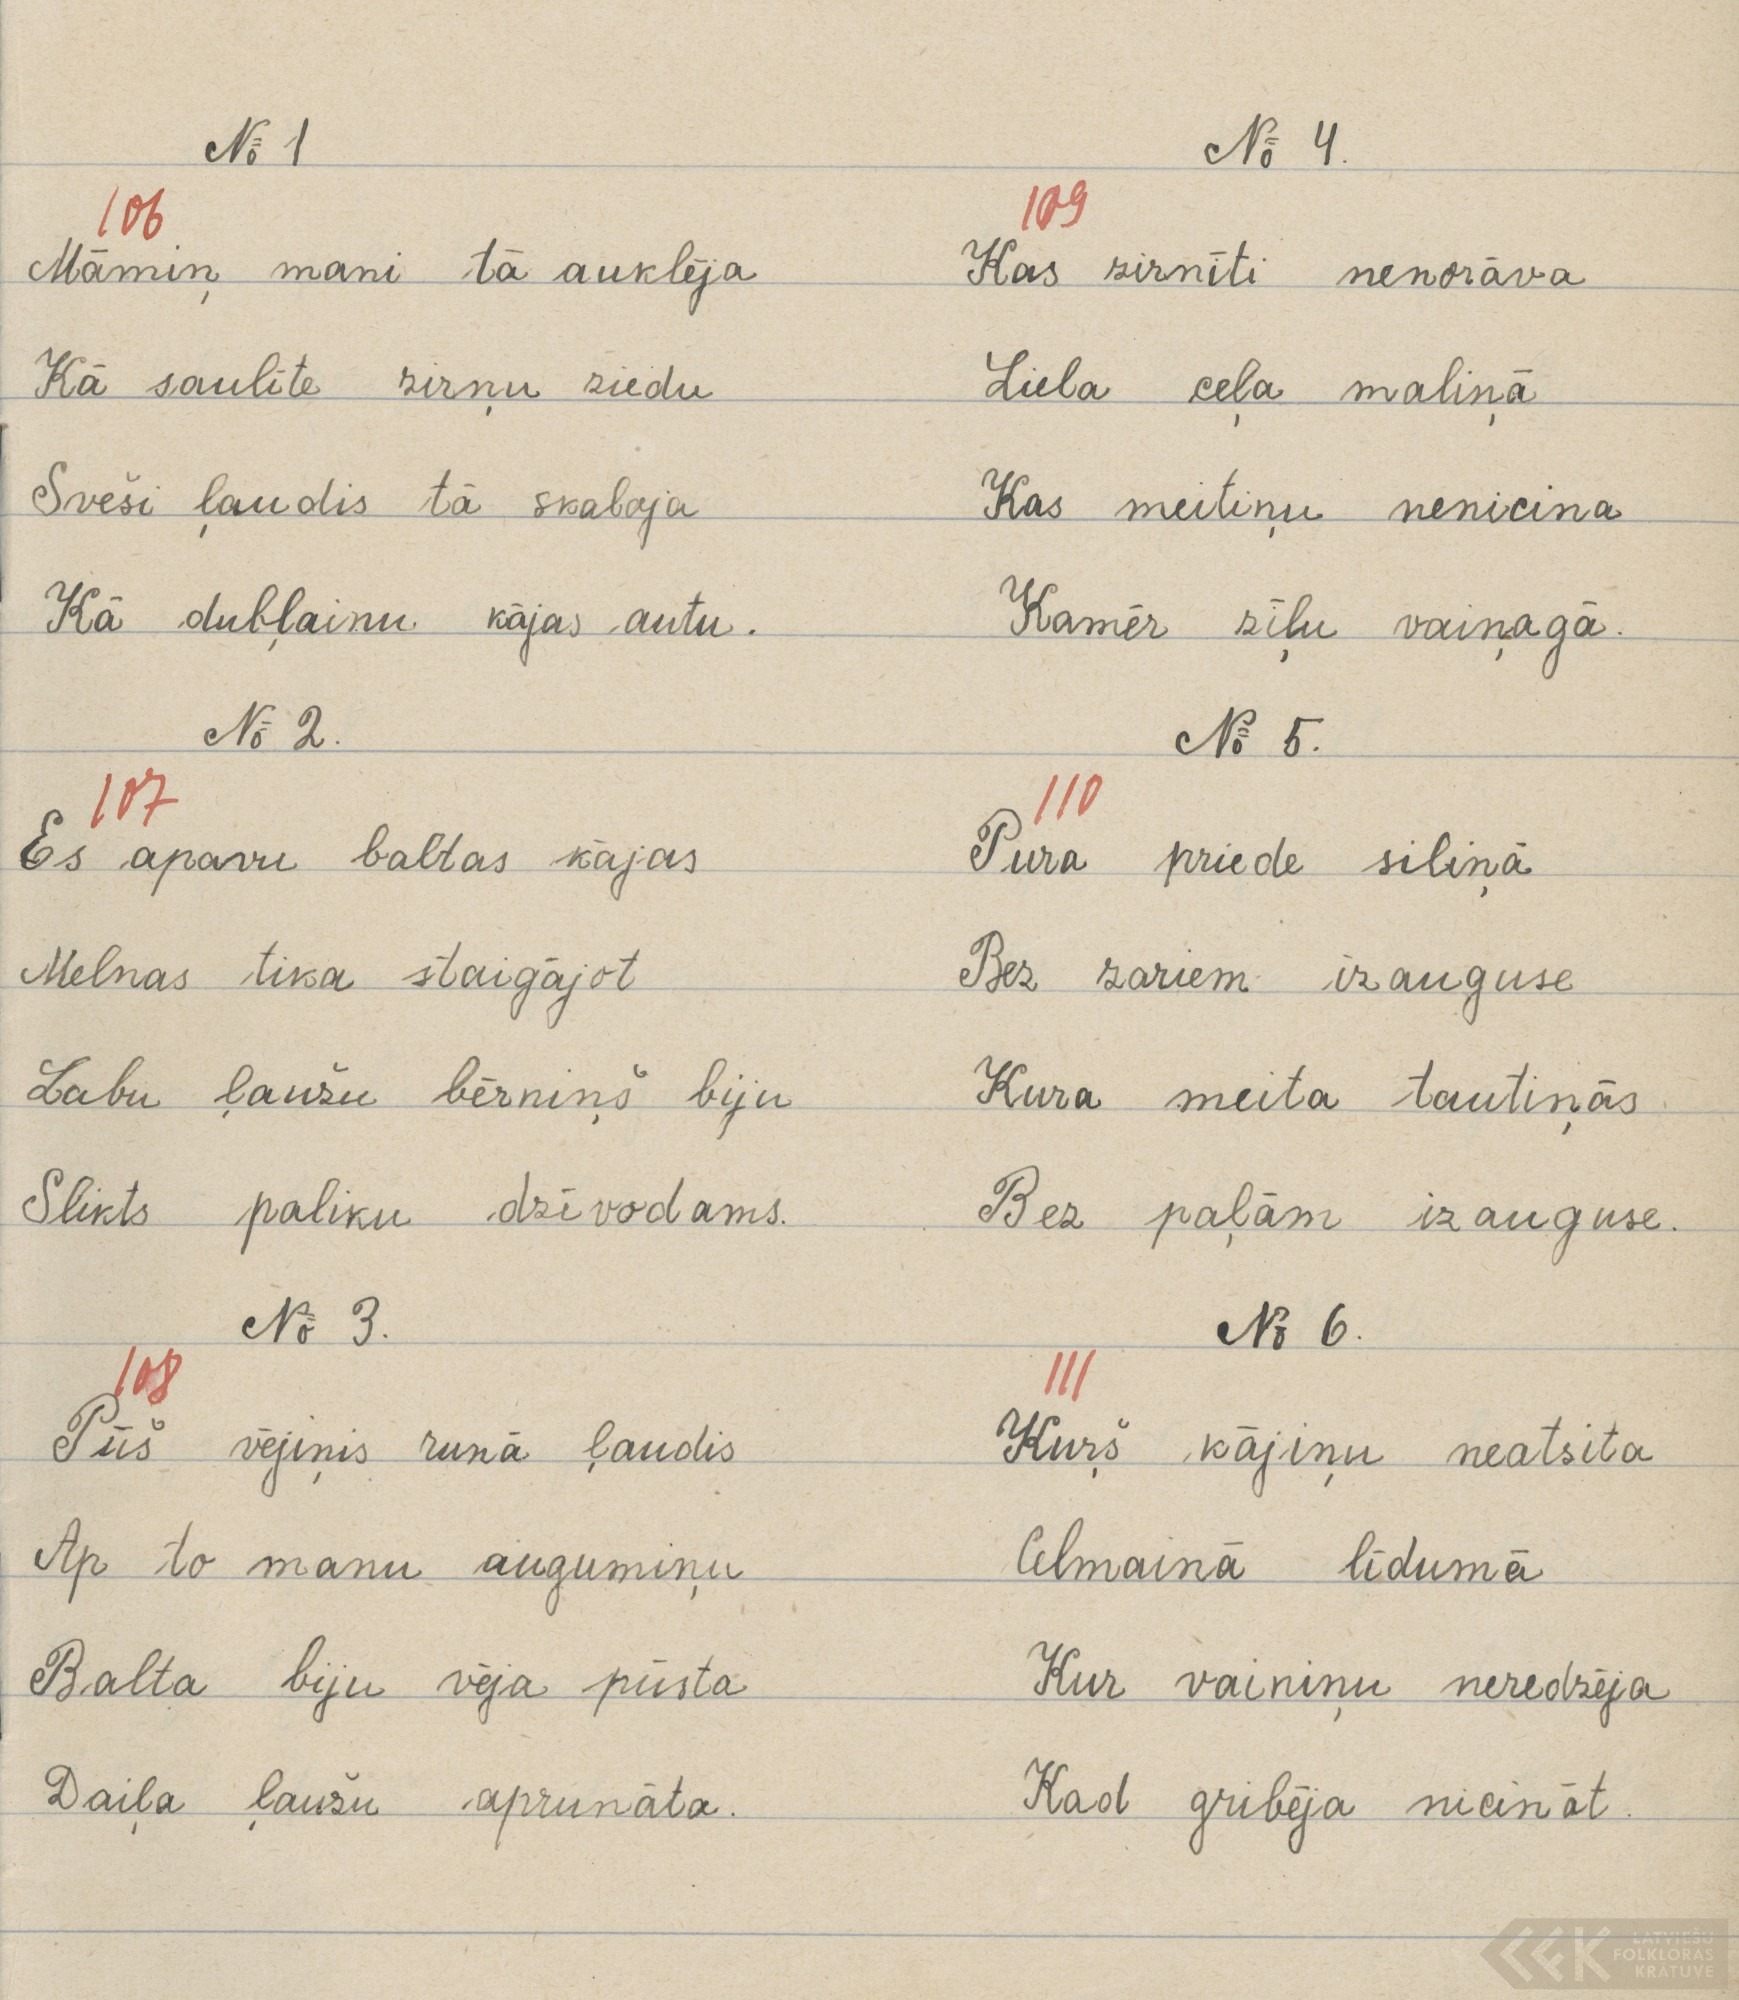 № 1
106
Māmiņ mani tā auklēja
Kā saulīte zirņu ziedu
Sveši ļaudis tā skaloja
Kā dubļainu kājas autu.
№ 2.
107
Es apavu baltas kājas
Melnas tika staigājot
Labu ļaužu bērniņš biju
Slikts paliku dzīvodams.
№ 3.
108
Pūš vējiņis runā ļaudis
Ap to manu augumiņu
Balta biju vēja pūsta
Daiļa ļaužu aprunāta.
№ 4.
109
Kas zirnīti nenorāva
Liela ceļa maliņā
Kas meitiņu nenicina
Kamēr zīļu vaiņagā.
№ 5.
110
Pura priede siliņā
Bez zariem izauguse
Kura meita tautiņās
Bez paļām izauguse.
№ 6.
111
Kuŗš kājiņu neatsita
Celmainā līdumā
Kur vainiņu neredzēja
Kad gribēja nicināt.
LATVIEŠU
FOLKLORAS
KRĀTUVE